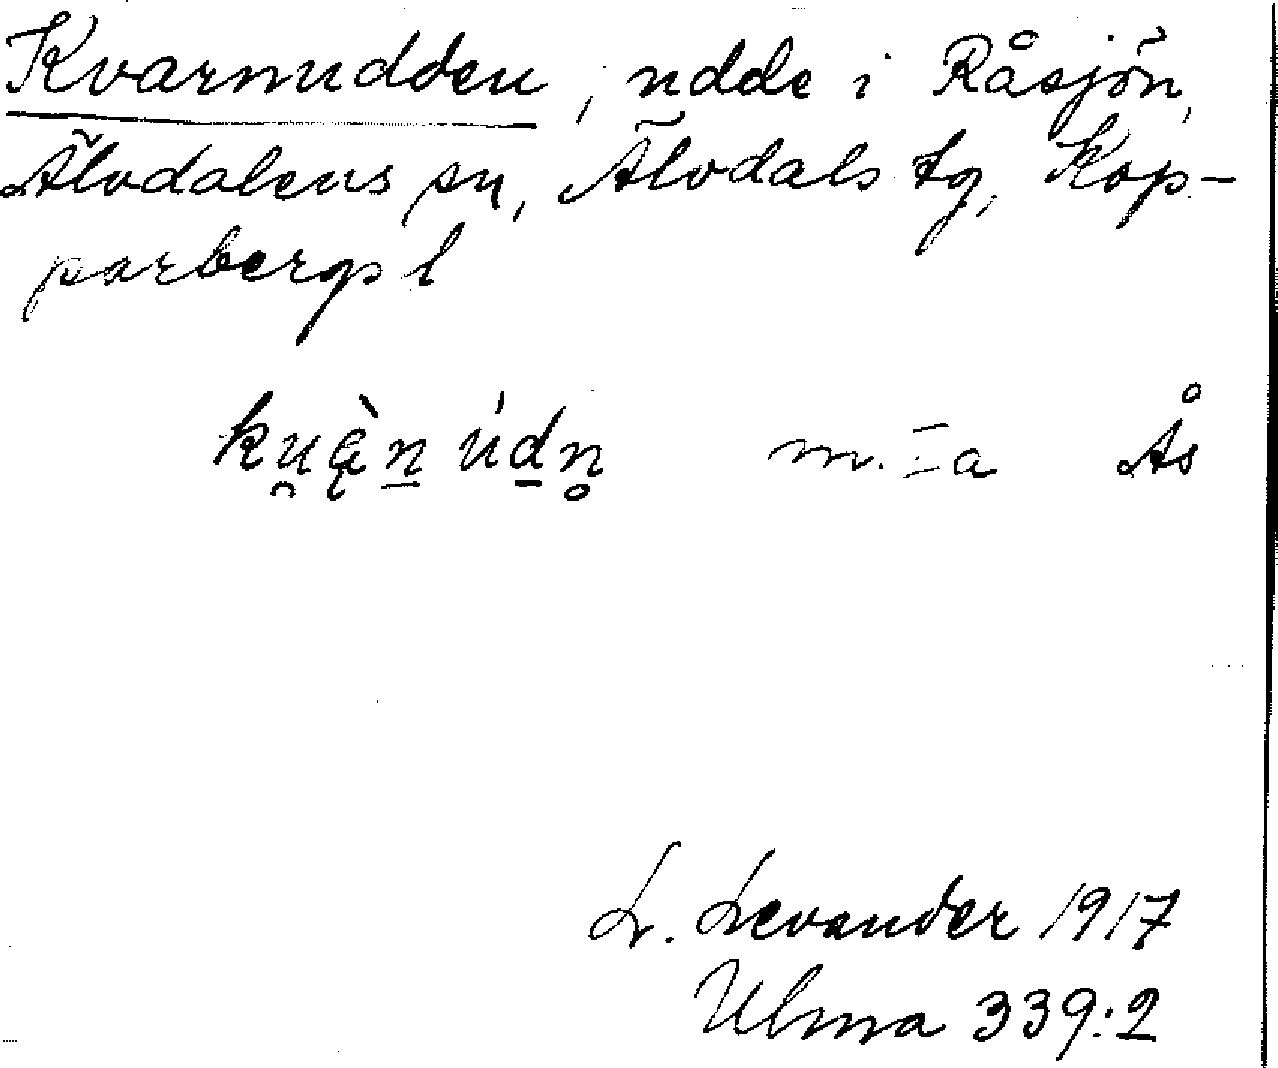 Kvarnudden, udde i Råsjön,
Älvdalens sn, Älvdals tg, Kop-
parbergs l
ku̯ą̀n̠ úd̠n̥ m. Ia Ås
L. Levander 1917
Ulma 339:2